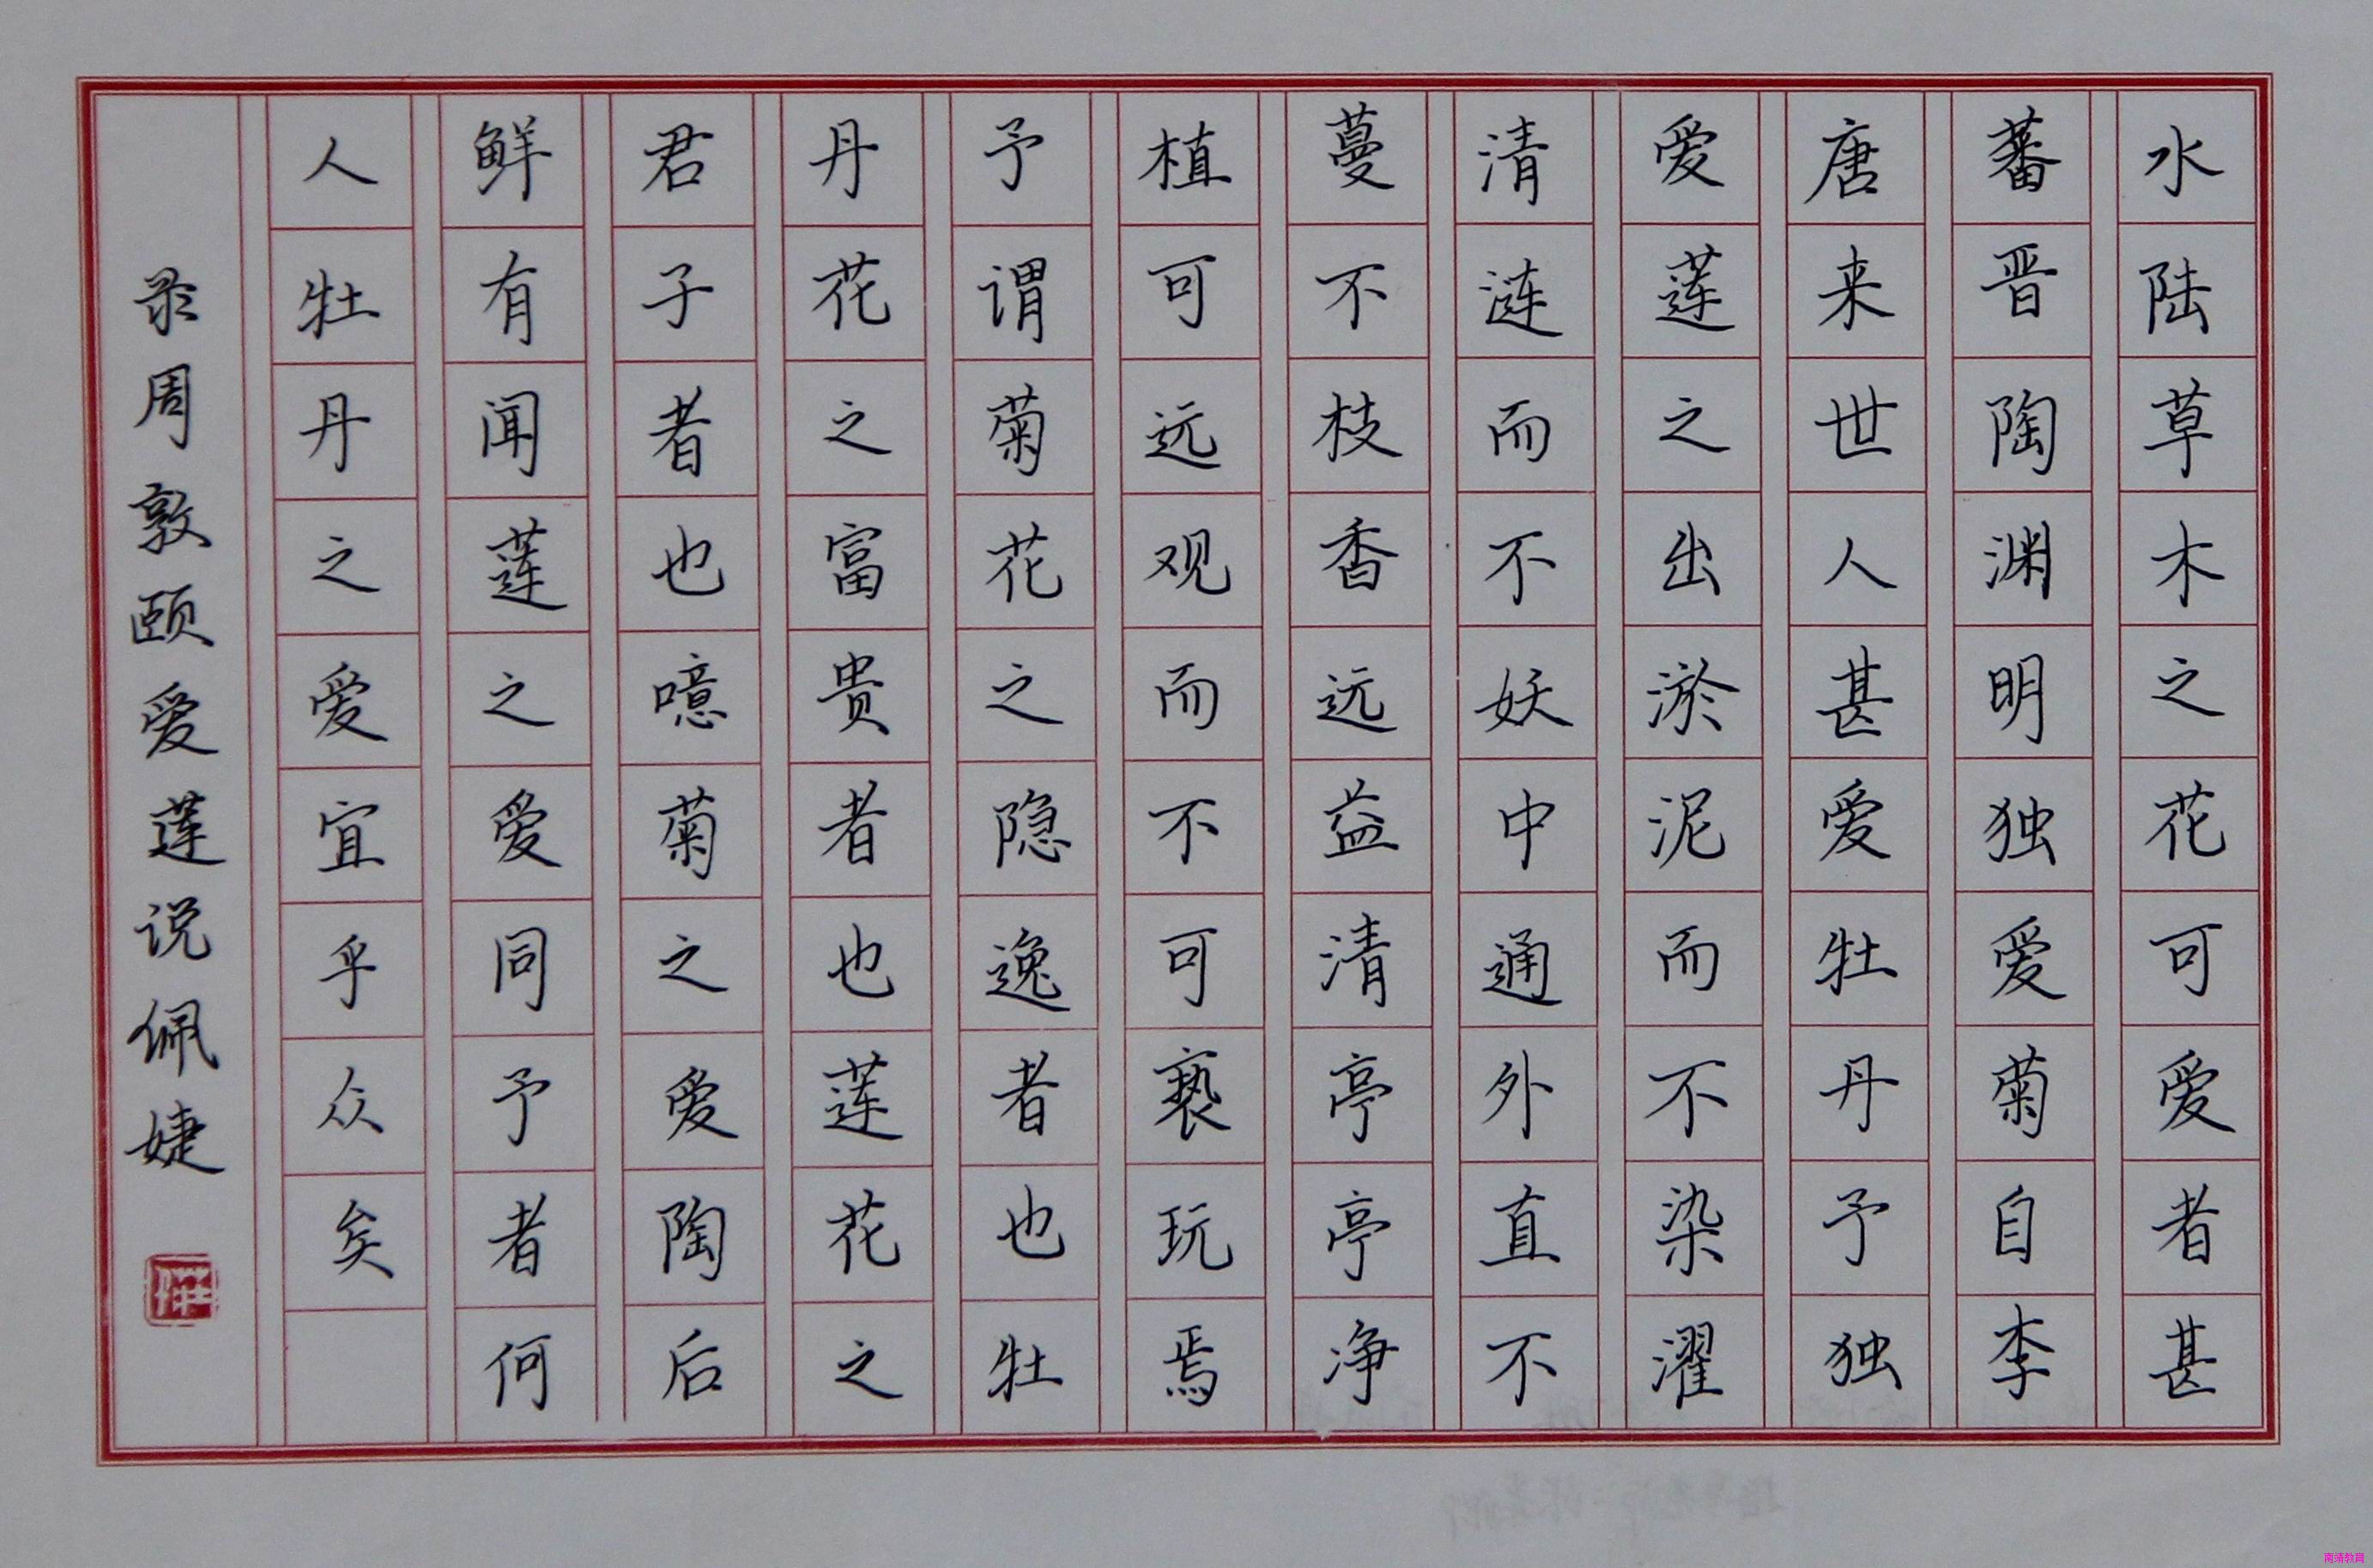 水陆草木之花可爱者甚
蕃晋陶渊明独爱菊自李
唐来世人甚爱牡丹予独
爱莲之出淤泥而不染濯
清涟而不妖中通外直不
蔓不枝香远益清亭亭净
植可远观而不可亵玩焉
予谓菊花之隐逸者也牡
丹花之富贵者也莲花之
君子者也噫菊之爱陶后
鲜有闻莲之爱同予者何
人牡丹之爱宜乎众矣
录周敦颐爱莲说佩婕
南靖教育